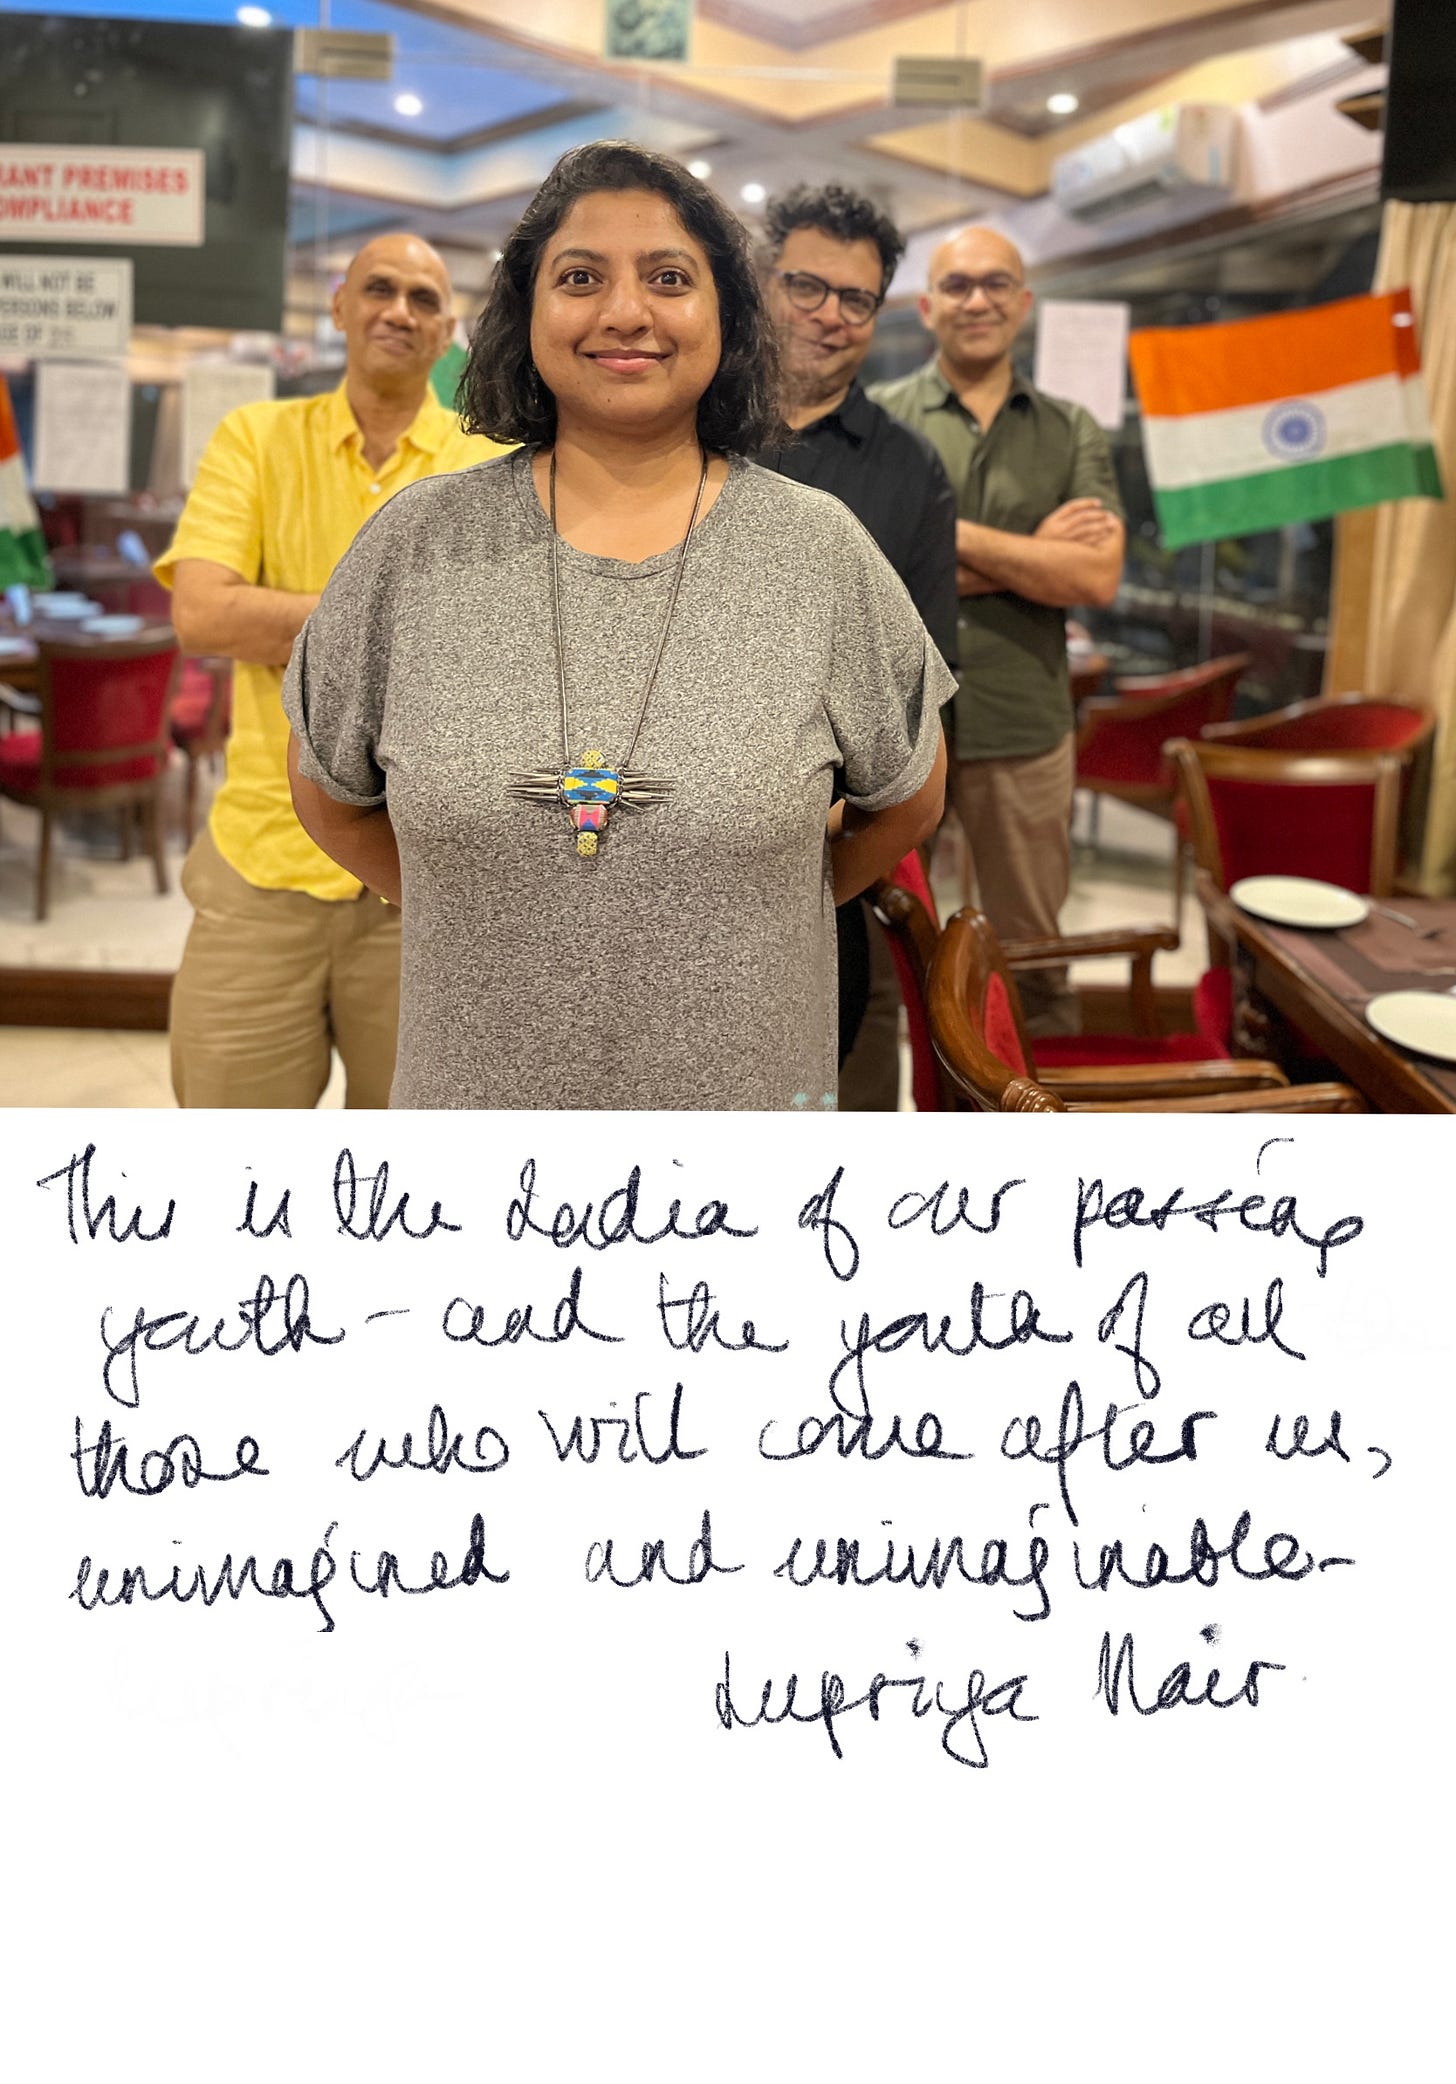 RANT PREMISES
OMPLIANCE
WILL NOT BE
PERSONS BELOW
This is the India of our passing
youth - and the youth of all
those who will come after us,
unimagined and unimaginable-
Supriya Nair